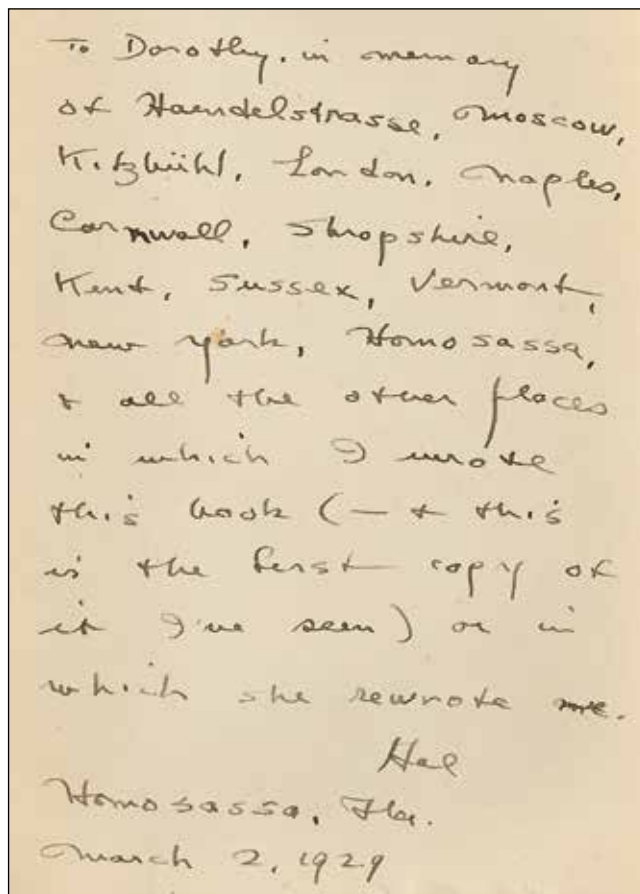 To Dorothy, in memory
of Haendelstrasse, Moscow,
Kitzbühl, London, Naples,
Cornwall, Shropshire,
Kent, Sussex, Vermont,
New York, Homosassa,
& all the other places
in which I wrote
this book (— & this
is the first copy of
it I've seen) or in
which she rewrote me.
Hal
Homosassa, Fla.
March 2, 1929